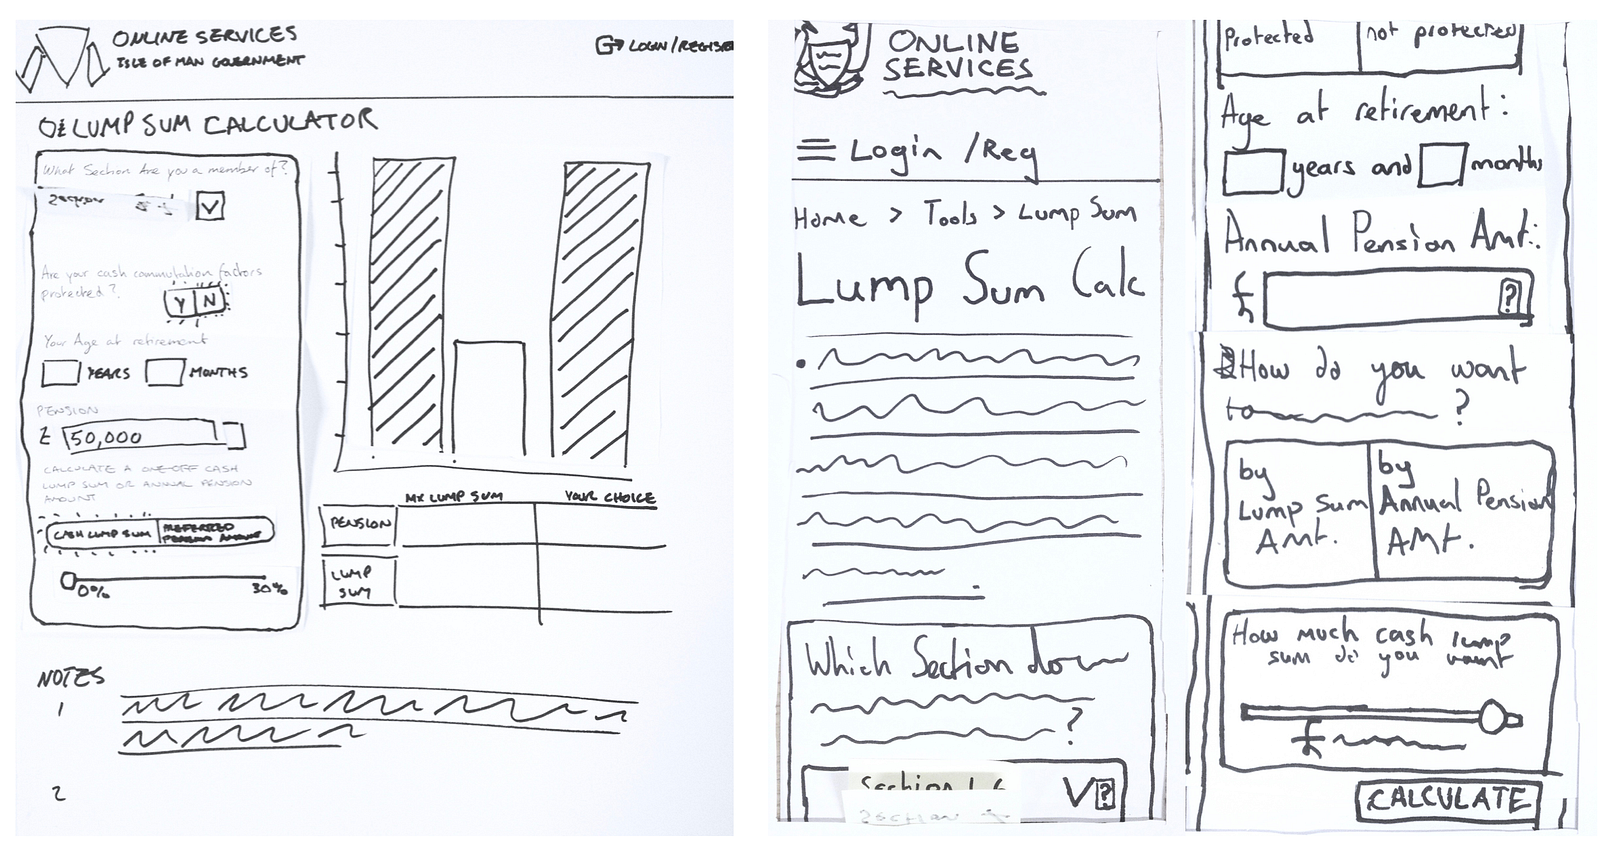 ONLINE SERVICES
ISLE OF MAN GOVERNMENT
LOGIN/REGISTE
LUMP SUM CALCULATOR
What Section Are you a member of?
Section
Are your cash commutation factors
protected?
Y N
Your Age at retirement
YEARS MONTHS
PENSION
£ 50,000
CALCULATE A ONE-OFF CASH
LUMP SUM OR ANNUAL PENSION
AMOUNT
CASH LUMP SUM PREFERRED
PENSION AMOUNT
0% 30%
MX LUMP SUM YOUR CHOICE
PENSION
LUMP
SUM
NOTES
1
2
ONLINE
SERVICES
Login /Reg
Home > Tools > Lump Sum
Lump Sum Calc
Which Section do
?
Section 1 6
?
Section
Protected not protected
Age at retirement:
years and months
Annual Pension Amt:
£ ?
How do you want
to ?
by
Lump Sum
Amt.
by
Annual Pension
Amt.
How much cash lump
sum do you want
£
CALCULATE